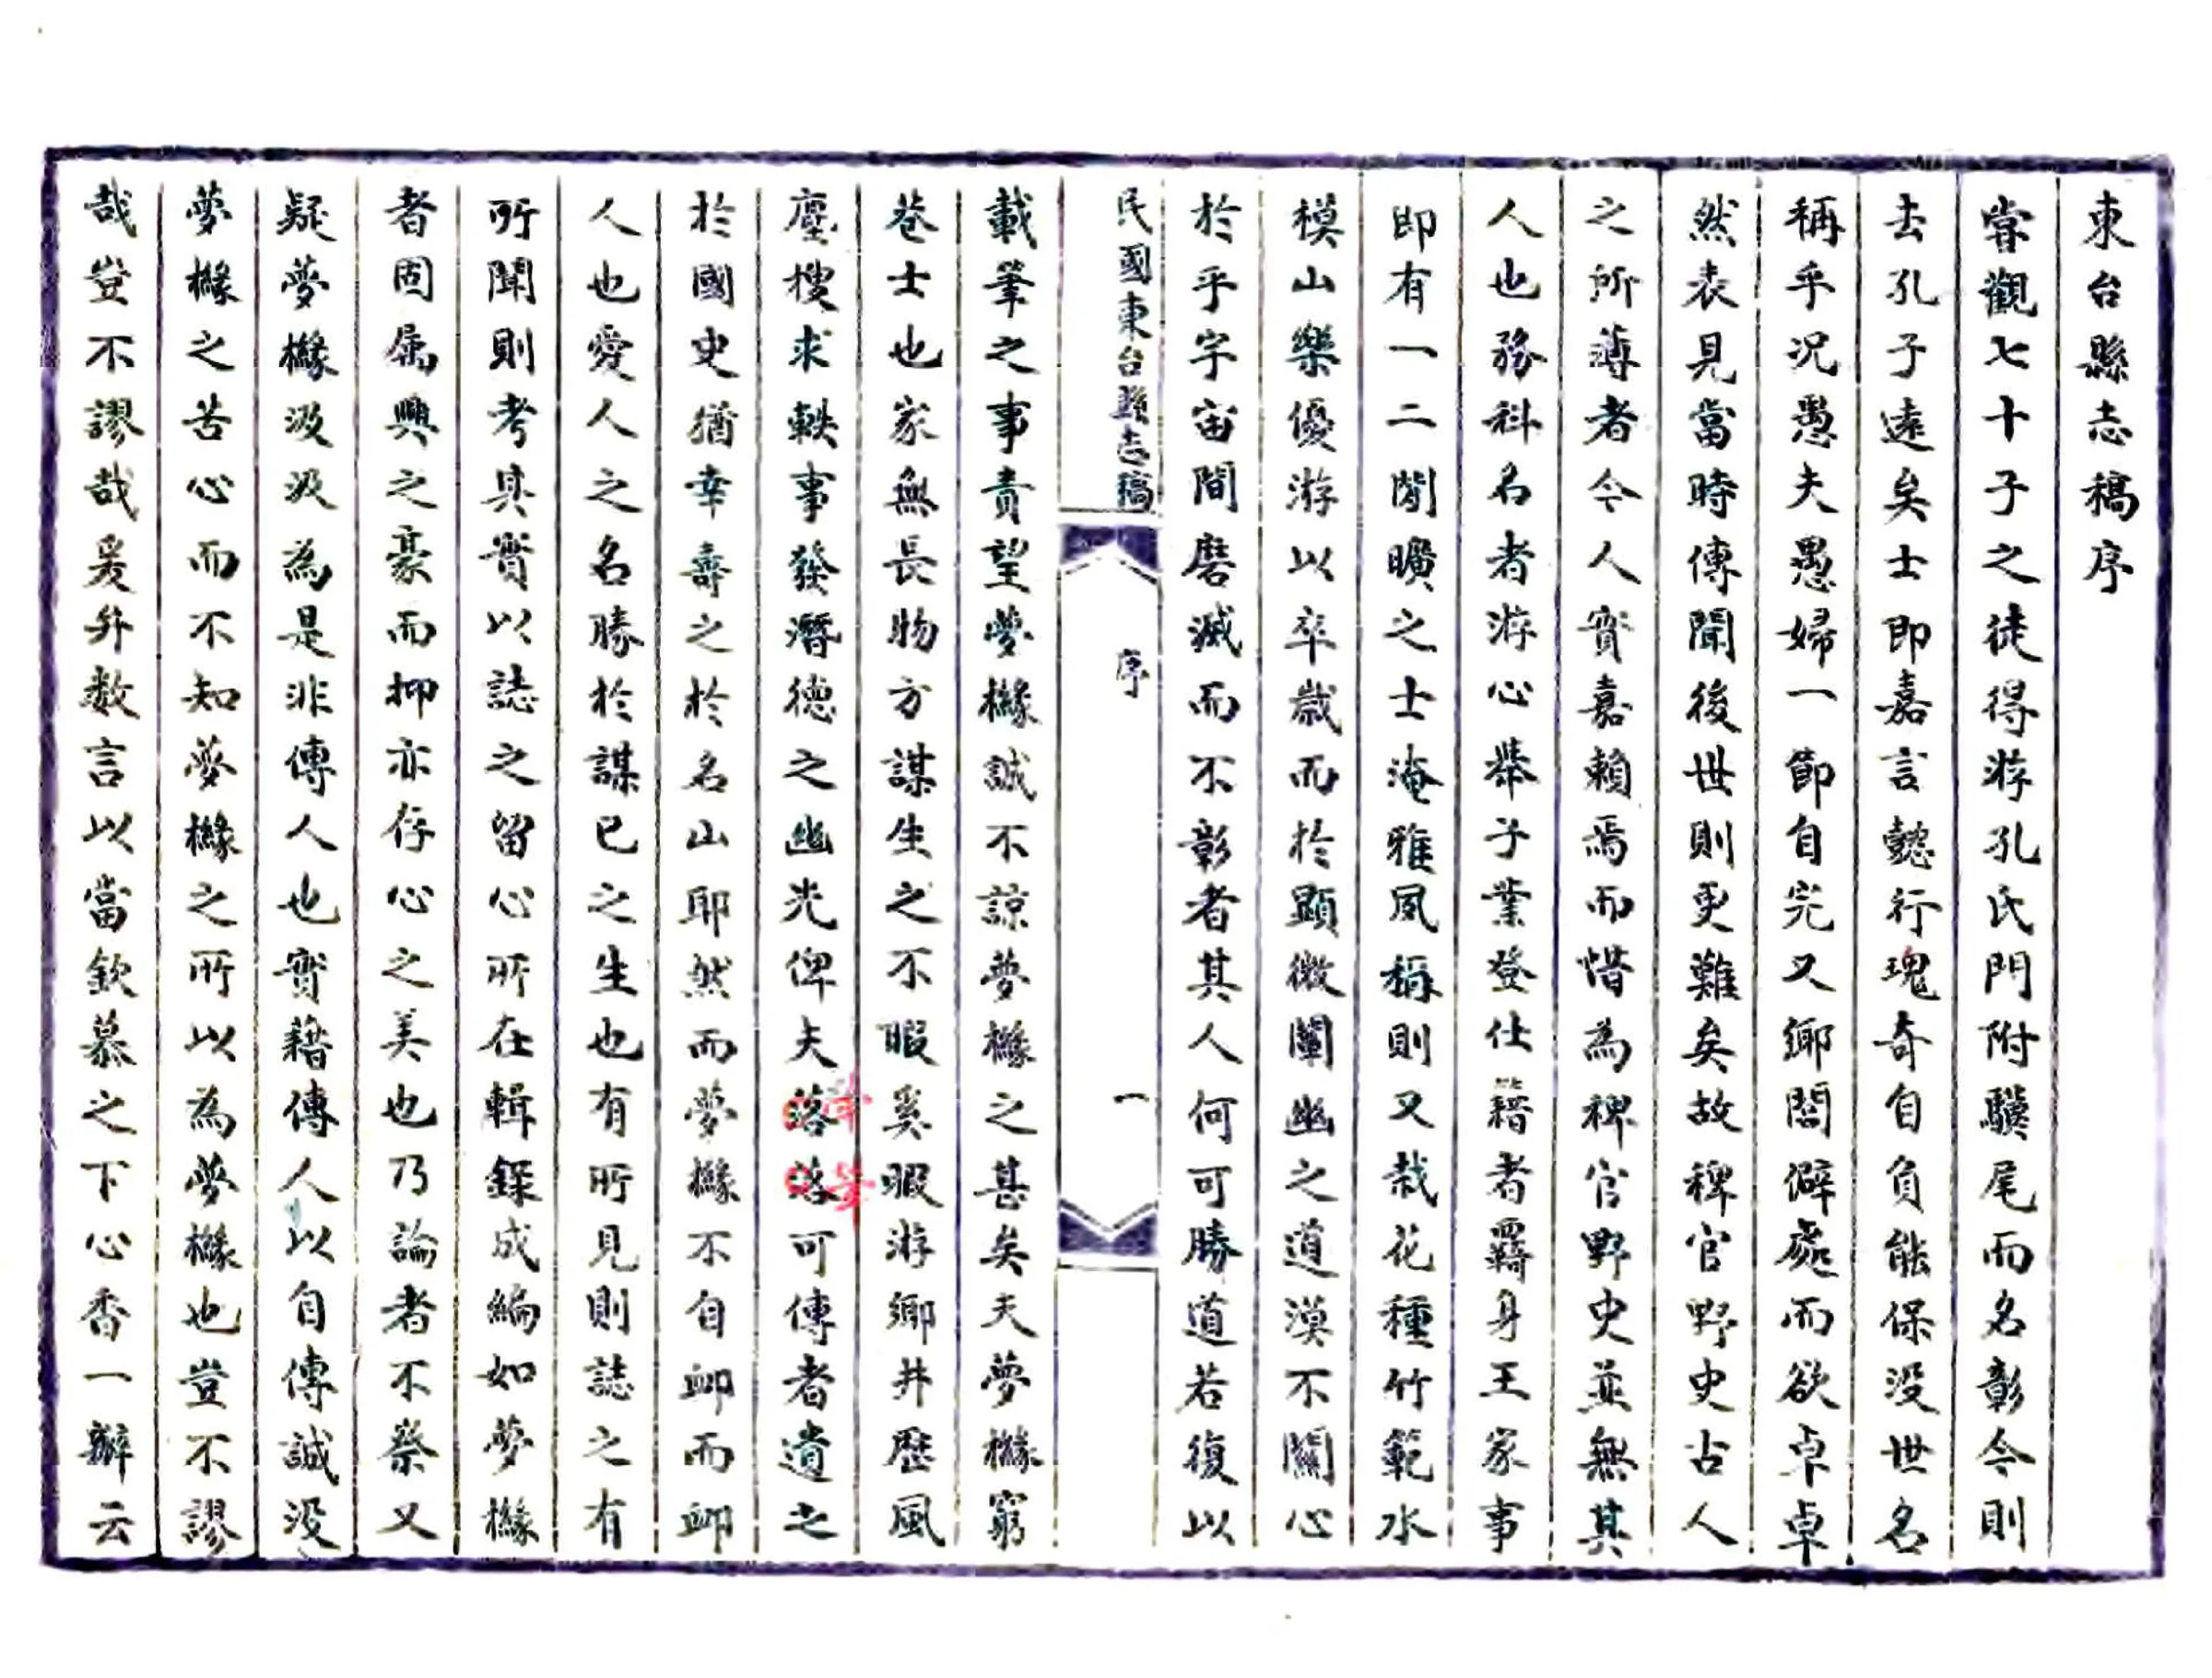 東台縣志稿序
嘗觀七十子之徒得游孔氏門附驥尾而名彰今則
去孔子遠矣士即嘉言懿行瑰奇自負能保没世名
稱乎況愚夫愚婦一節自完又鄉閭僻處而欲卓卓
然表見當時傳聞後世則更難矣故稗官野史古人
之所薄者今人實嘉賴焉而惜為稗官野史並無其
人也務科名者游心舉子業登仕籍者羇身王家事
即有一二閒曠之士淹雅夙稱則又栽花種竹範水
模山樂優游以卒歲而於顯微闡幽之道漠不關心
於乎宇宙間磨滅而不彰者其人何可勝道若復以
民國東台縣志稿
序
一
載筆之事責望夢櫞誠不諒夢櫞之甚矣夫夢櫞窮
巷士也家無長物方謀生之不暇奚暇游鄉井歷風
塵搜求軼事發潛德之幽光俾夫落落可傳者遺之
於國史猶幸壽之於名山耶然而夢櫞不自卹而卹
人也愛人之名勝於謀己之生也有所見則誌之有
所聞則考其實以誌之留心所在輯錄成編如夢櫞
者固属興之豪而抑亦存心之美也乃論者不察又
疑夢櫞汲汲為是非傳人也實藉傳人以自傳誠没
夢櫞之苦心而不知夢櫞之所以為夢櫞也豈不謬
哉豈不謬哉爰弁数言以當欽慕之下心香一瓣云